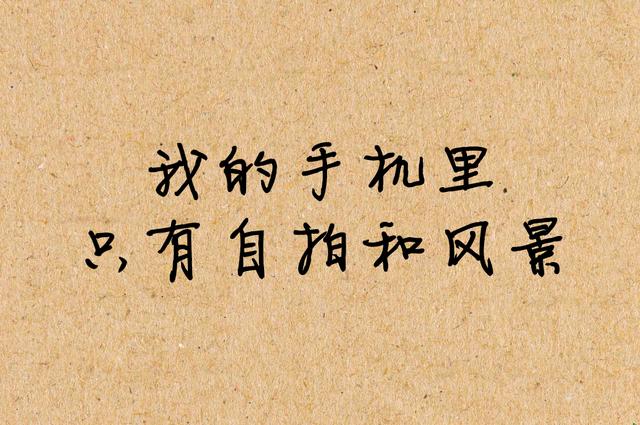 我的手机里
只有自拍和风景